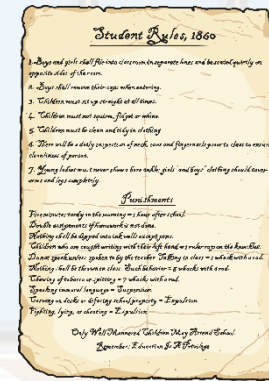 Student Rules, 1860
1. Boys and girls shall file into classroom in separate lines and be seated quietly on
opposite sides of the room.
2. Boys shall remove their caps when entering.
3. Children must sit up straight at all times.
4. Children must not squirm, fidget or whine.
5. Children must be clean and tidy in clothing
6. There will be a daily inspection of neck, ears and fingernails prior to class to ensure
cleanliness of person.
7. Young ladies must never show bare ankle; girls' and boys' clothing should cover
arms and legs completely.
Punishments
Five minutes tardy in the morning = 1 hour after school.
Double assignments if homework is not done.
Nothing shall be dipped into ink wells except pens.
Children who are caught writing with their left hand = ruler raps on the knuckles.
Do not speak unless spoken to by the teacher. Talking in class = 1 whack with a rod.
Nothing shall be thrown in class. Such behavior = 5 whacks with a rod.
Chewing of tobacco or spitting = 7 whacks with a rod.
Speaking immoral language = Suspension.
Carving on desks or defacing school property = Expulsion.
Fighting, lying, or cheating = Expulsion
Only Well Mannered Children May Attend School.
Remember: Education Is A Privilege